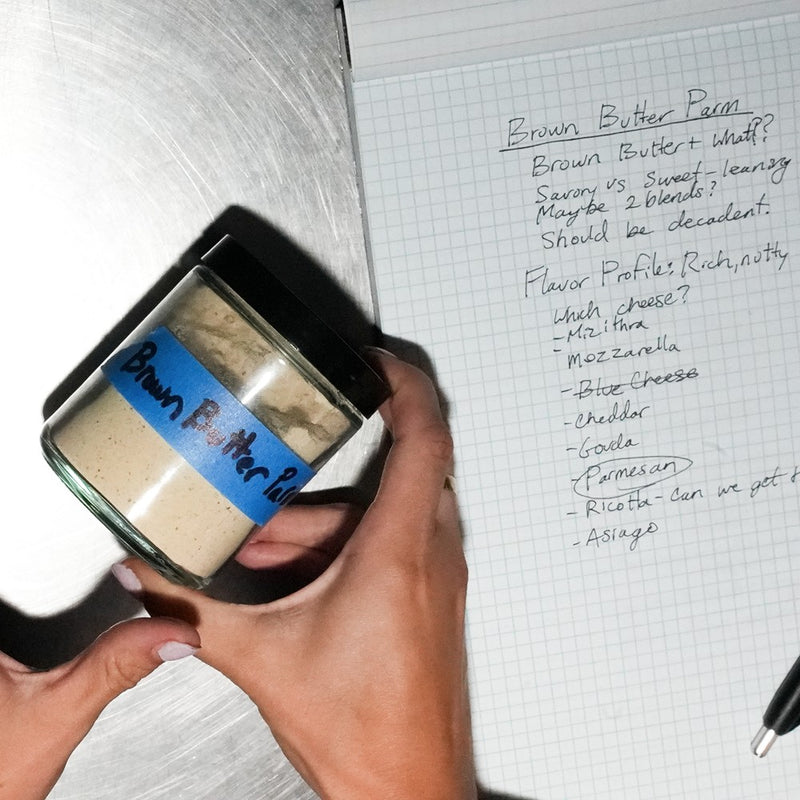 Brown Butter Pa
Brown Butter Parm
Brown Butter + What??
Savory vs Sweet-leaning
Maybe 2 blends?
Should be decadent.
Flavor Profile: Rich, nutty
Which cheese?
- Mizithra
Mozzarella
- Blue Cheese
- Cheddar
- Gouda
- Parmesan
- Ricotta - Can we get
- Asiago